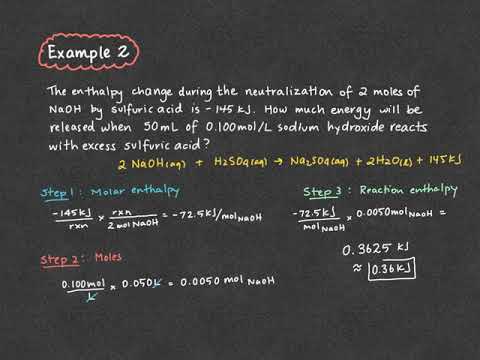 Example 2
The enthalpy change during the neutralization of 2 moles of
NaOH by sulfuric acid is -145 kJ. How much energy will be
released when 50mL of 0.100mol/L sodium hydroxide reacts
with excess sulfuric acid?
2 NaOH(aq) + H2SO4(aq) → Na2SO4(aq) + 2H2O(l) + 145kJ
Step 1: Molar enthalpy
-145 kJ/rxn x rxn/2 mol NaOH = -72.5 kJ/mol NaOH
Step 2: Moles
0.100mol/L x 0.050L = 0.0050 mol NaOH
Step 3: Reaction enthalpy
-72.5 kJ/mol NaOH x 0.0050mol NaOH =
0.3625 kJ
≈ 0.36 kJ